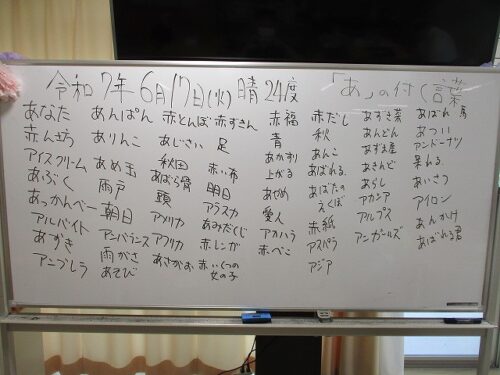 令和7年6月17日(火)晴24度 「あ」の付く言葉
あなた
赤んぼう
アイスクリーム
あぶく
あっかんべー
アルバイト
あずき
アンブレラ
あんぱん
ありんこ
あめ玉
雨戸
朝日
アンバランス
雨がさ
あそび
赤とんぼ
あじさい
秋田
あばら骨
頭
アメリカ
アフリカ
あさがお
赤ずきん
足
赤い布
明日
アラスカ
あみだくじ
赤レンガ
赤いくつの女の子
赤福
青
あかすり
上がる
あせめ
愛人
アカハラ
赤べこ
赤だし
秋
あんこ
あばれる
あばたのえくぼ
赤紙
アスパラ
アジア
あずき菜
あんどん
あずま屋
あきんど
あらし
アカシア
アルプス
アンガールズ
あばれ馬
あつい
アンドーナツ
呆れる
あいさつ
アイロン
あんかけ
あばれる君